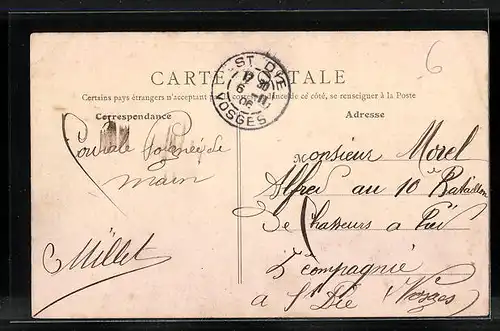 6
ST DIÉ
12 30
6 - 11
06
VOSGES
CARTE POSTALE
Certains pays étrangers n'acceptant pas la correspondance de ce côté, se renseigner à la Poste
Correspondance
Adresse
Cordiale Poignée de
main
Millet
Monsieur Morel
Alfred au 10e Bataillon
De Chasseurs a Pied
2e Compagnie
a St Dié Vosges